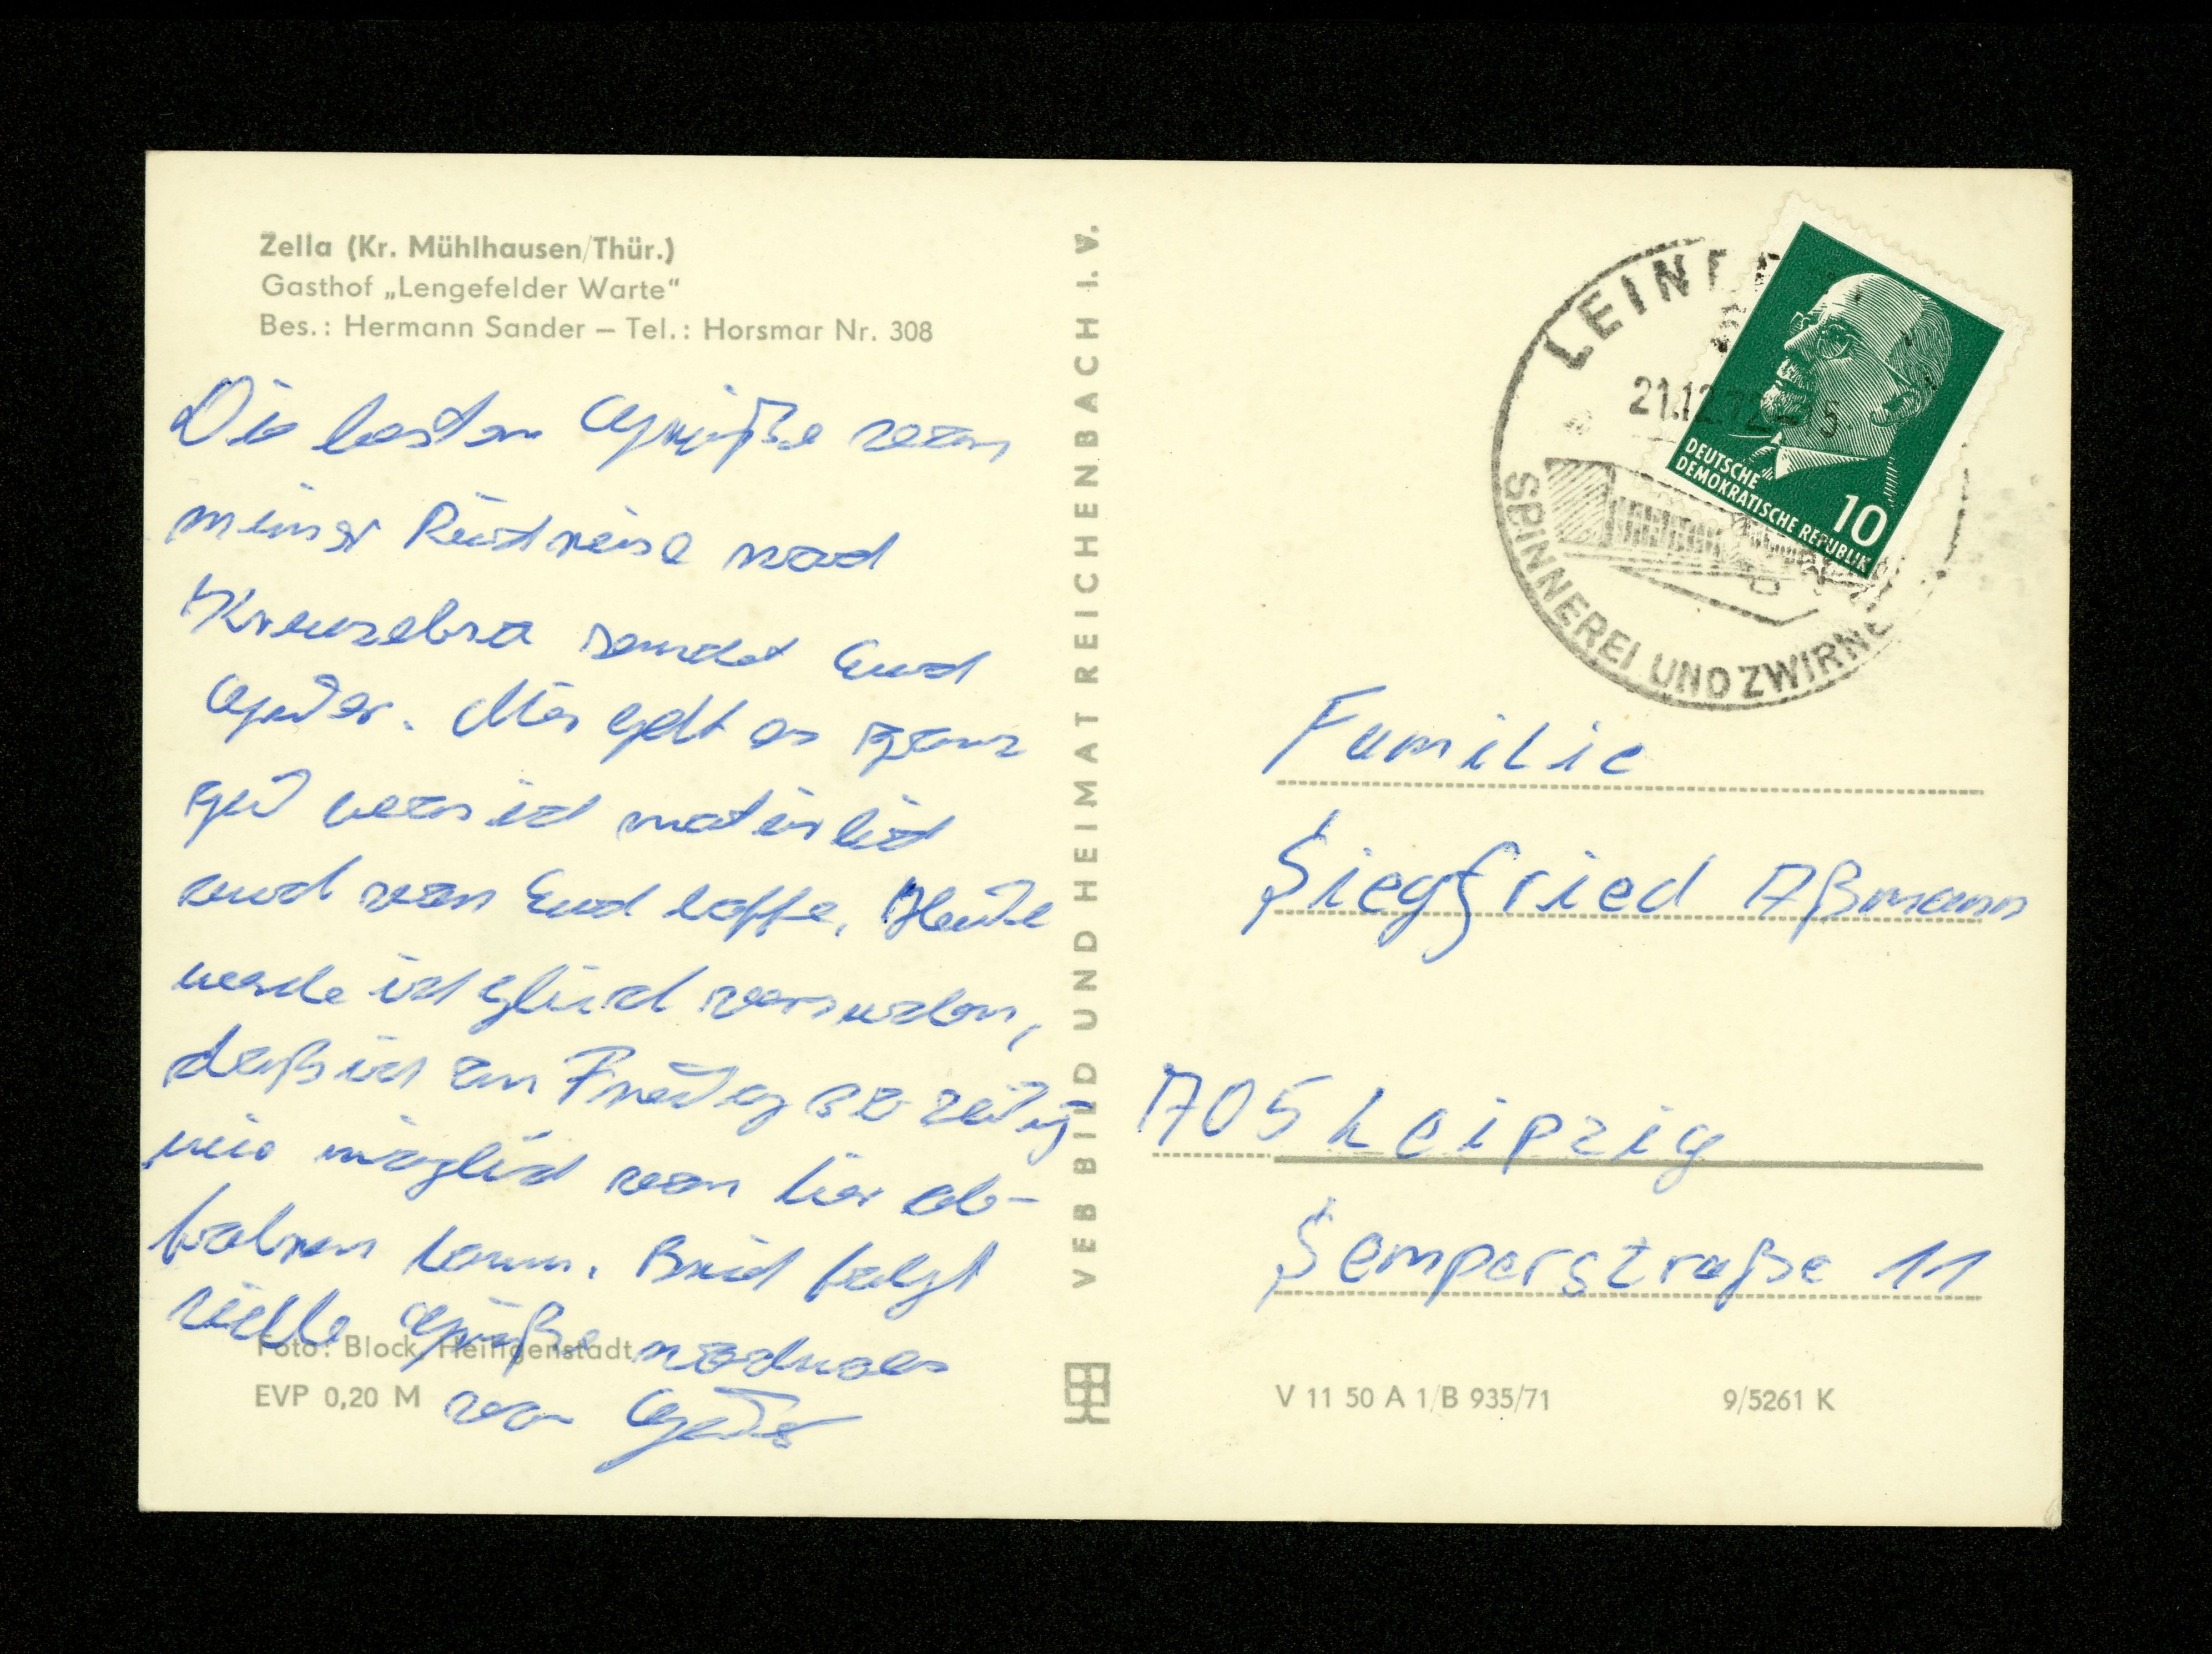 Zella (Kr. Mühlhausen/Thür.)
Gasthof „Lengefelder Warte“
Bes.: Hermann Sander – Tel.: Horsmar Nr. 308
Die besten Grüße von
meiner Rückreise nach
Kreuzebra sendet Euch
Mir geht es ganz
gut was ich natürlich
auch von Euch hoffe. Heute
werde ich gleich versuchen,
daß ich am Freitag so zeitig
wie möglich von hier ab-
fahren kann. Brief folgt
vielle Grüße nochmals
von
Foto: Block, Heiligenstadt
EVP 0,20 M
VEB BILD UND HEIMAT REICHENBACH I. V.
LEINE
21.12.72-15
SPINNEREI UND ZWIRNE
DEUTSCHE
DEMOKRATISCHE REPUBLIK
10
Familie
Siegfried Aßmann
705 Leipzig
Semperstraße 11
V 11 50 A 1/B 935/71
9/5261 K